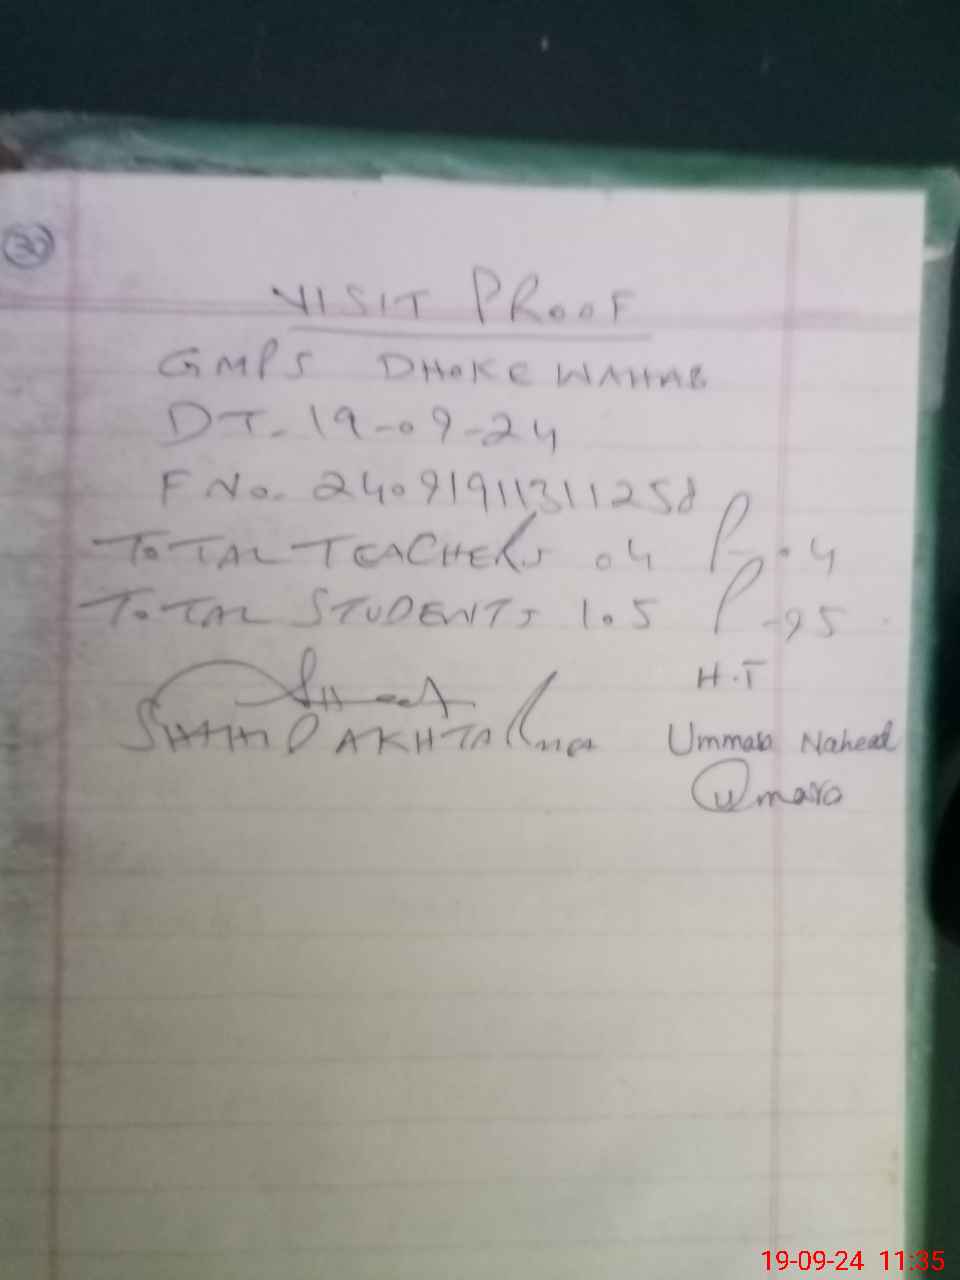 30
VISIT PROOF
GMPS DHOKE WAHAB
DT. 19-09-24
F No. 2409191131125
TOTAL TEACHERS 04 P-04
TOTAL STUDENTS 105 P-95
H.T
SHAHID AKHTAR MEA Ummara Naheed
Ummara
19-09-24 11:35